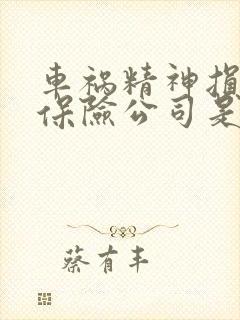 車祸精神損
保險公司是
蔡有丰